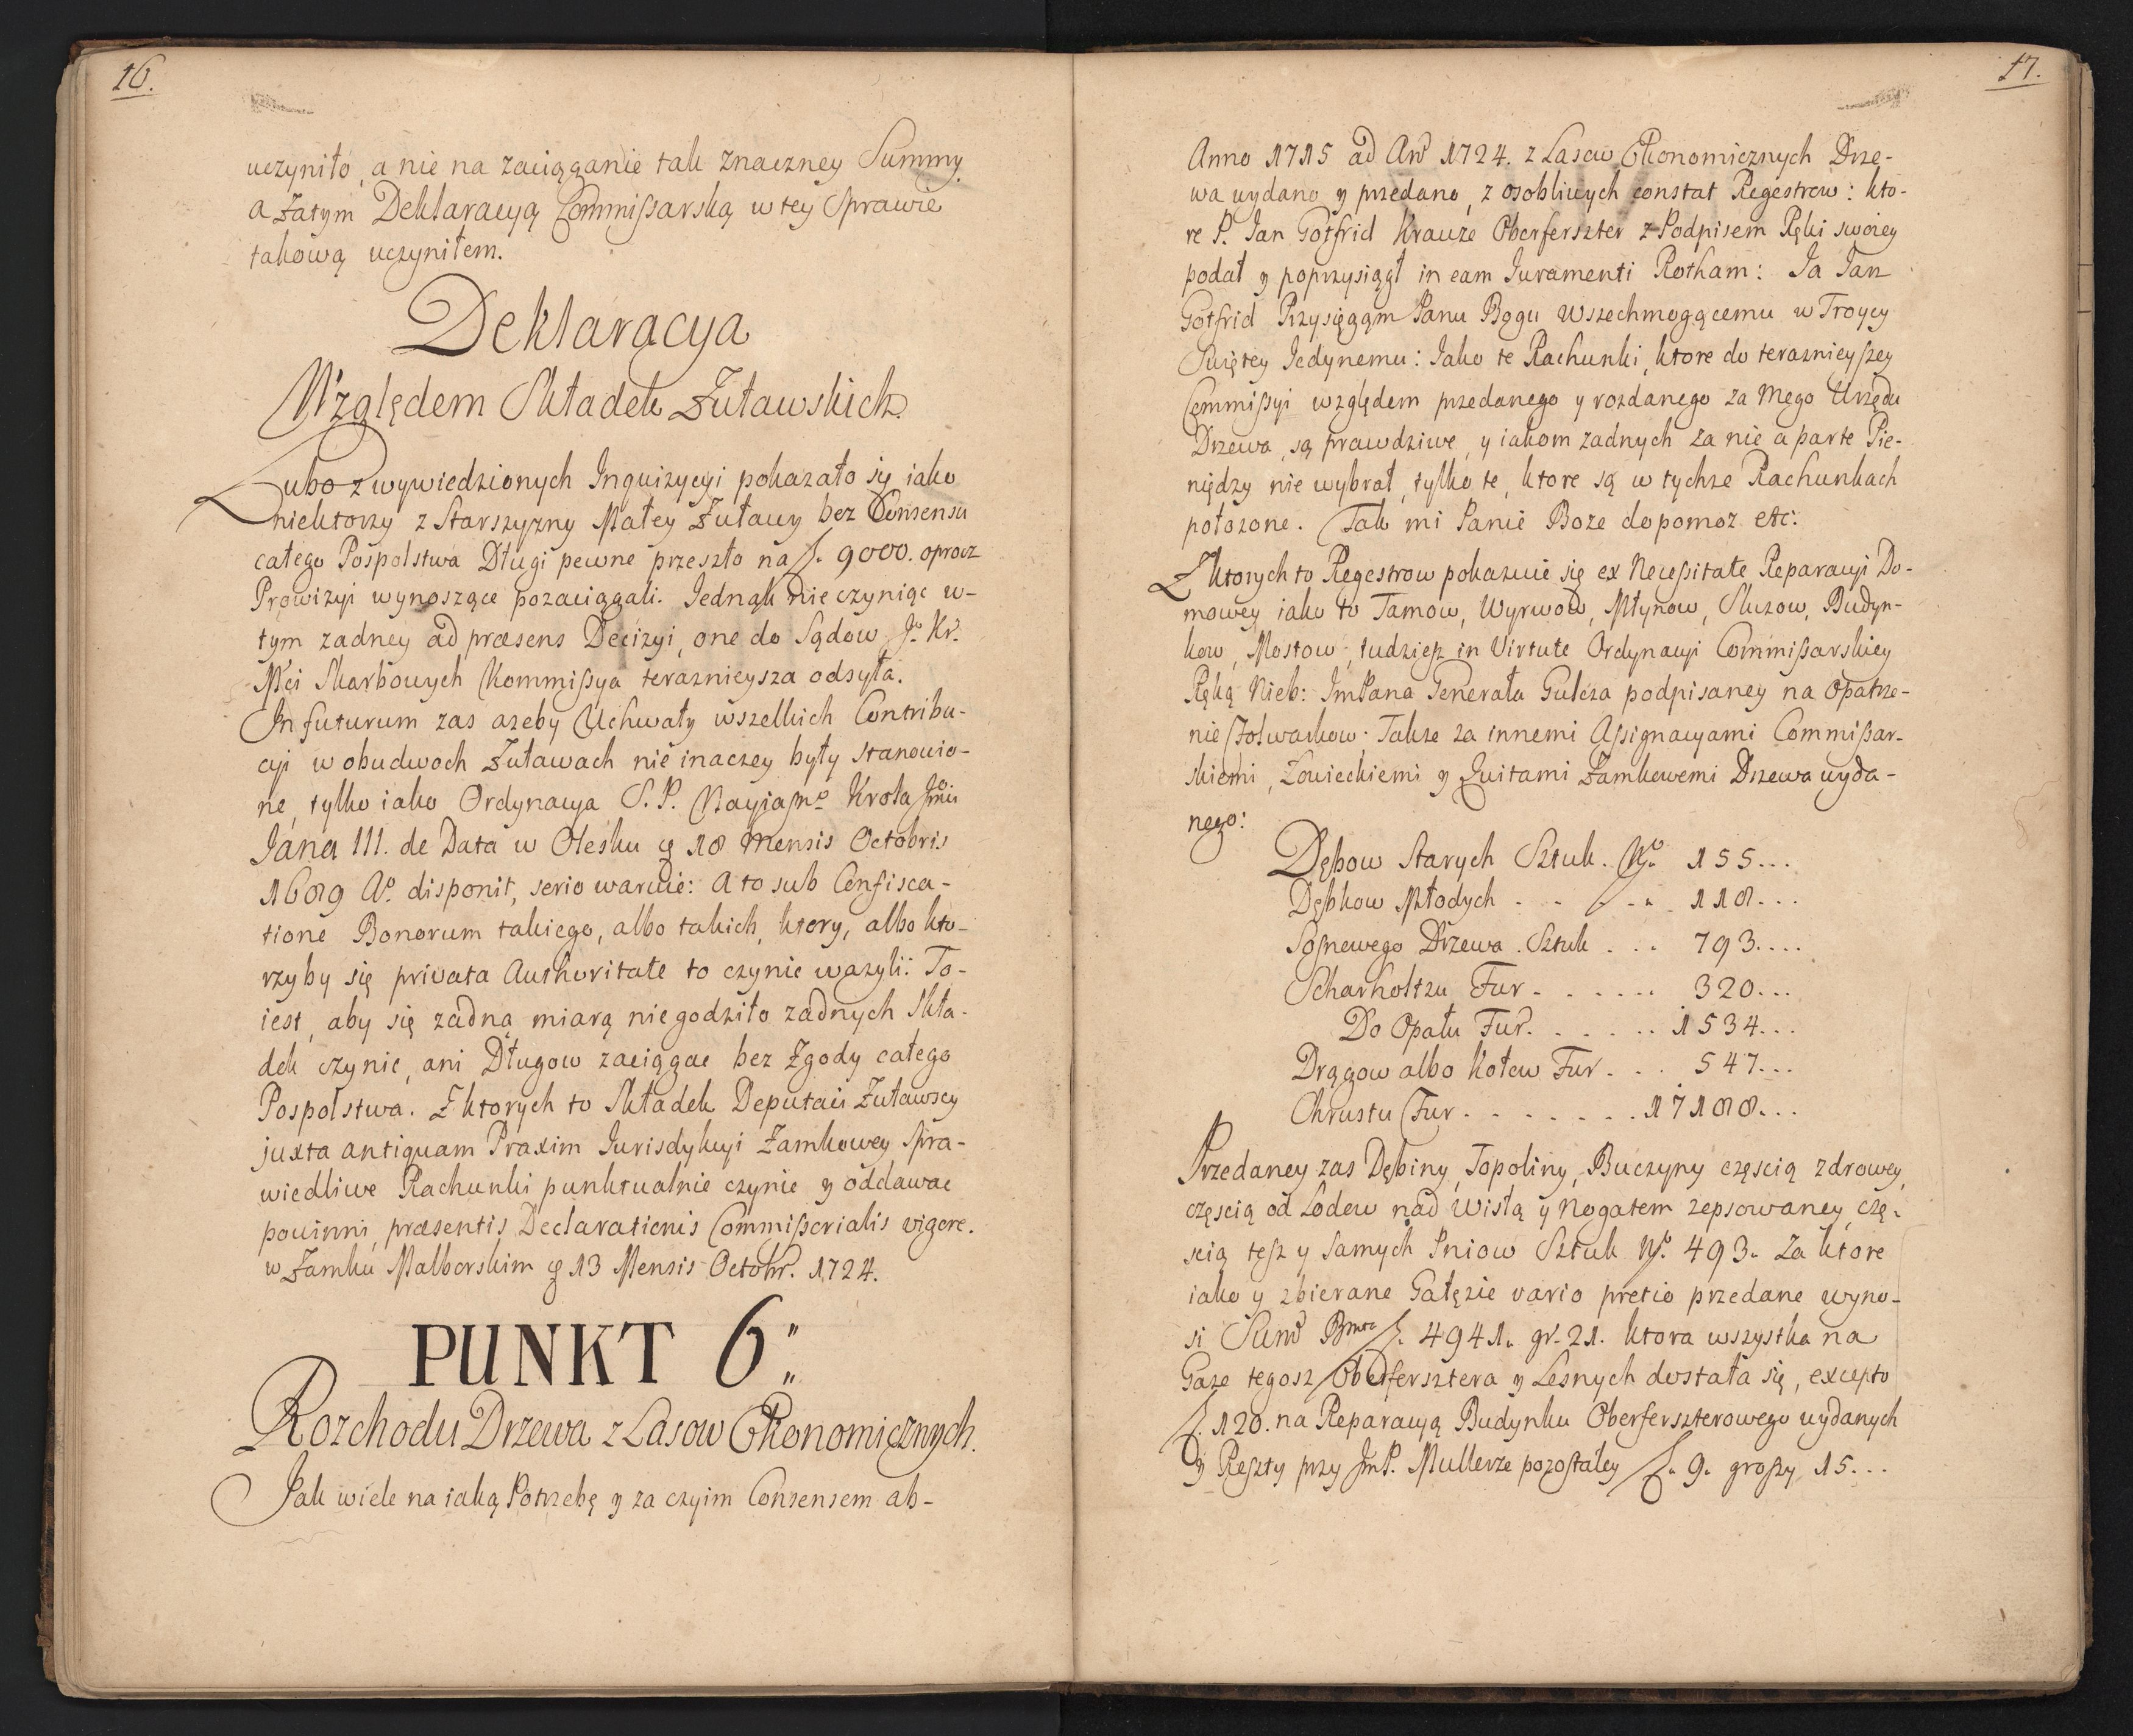 16.
uczyniło, a nie na zaciąganie tak znaczney Summy.
a zatym Deklaracyą Commißarską w tey Sprawie
takową uczyniłem.
Deklaracya
Względem Składek Żuławskich.
Lubo z wywiedzionych Inquizycyi pokazało się iako
niektorzy z Starszyzny Małey Żuławy bez Consensu
całego Pospolstwa Długi pewne przeszło na f. 9000. oprocz
Prowizyi wynoszące pozaciągali. Jednąk nie czyniąc w-
tym zadney ad præsens Decizyi, one do Sądow J. Kr.
Mći Skarbowych Kommißya teraznieysza odsyła.
In futurum zas azeby Uchwały wszelkich Contribu-
cyi w obudwoch Żuławach nie inaczey były stanowio-
ne, tylko iako Ordynacya S. P. Nayjasno Krola Jmći
Jana III. de Data w Olesku q 18 Mensis Octobris
1689 Ao. disponit, serio waruie: A to sub Confisca-
tione Bonorum takiego, albo takich, ktory, albo kto-
rzyby się privata Authoritate to czynic wazyli: To-
iest, aby się żadną miarą nie godziło zadnych Skła-
dek czynic, ani Długow zaciągac bez Zgody całego
Pospolstwa. Z ktorych to Składek Deputaći Żuławscy
juxta antiquam Praxim Iurisdykcyi Zamkowey Spra-
wiedliwe Rachunki punktualnie czynic y oddawac
powinni, præsentis Declarationis Commißorialis vigore.
w Zamku Malborskim q 13 Mensis Octobr. 1724.
PUNKT 6.
Rozchodu Drzewa z Lasow Ekonomicznych.
Jak wiele na iaką Potrzebę y za czyim Consensem ab-
17.
Anno 1715 ad Ann 1724. z Lasow Ekonomicznych Drze-
wa wydano y przedano, z osobliwych constat Regestrow: kto-
re P. Jan Gotfrid Krauze Oberferszter z Podpisem Ręki swoiey
podał y poprzysiągł in eam Iuramenti Rotham: Ja Jan
Gotfrid Przysięgąm Panu Bogu Wszechmogącemu w Troycy
Swiętey Jedynemu: Jako te Rachunki, ktore do teraznieyszey
Commißyi względem przedanego y rozdanego za Mego Urzędu
Drzewa, są prawdziwe, y iakom zadnych za nie a parte Pie-
niędzy nie wybrał, tylko te, ktore są w tychze Rachunkach
położone. Tak mi Panie Boze dopomoz etc:
Z ktorych to Regestrow pokazuie się ex Necessitate Reparacyi Do-
mowey iako to Tamow, Wyrwow, Młynow, Sluzow, Budyn-
kow, Mostow, tudziesz in Virtute Ordynacyi Commißarskiey
Ręką Nieb: ImPana Generała Gulcza podpisaney na Opatrze-
nie Folwarkow; Takze za innemi Aßignacyami Commißar-
skiemi, Łowieckiemi y Quitami Zamkowemi Drzewa wyda-
nego:
Dębow starych Sztuk. No. 155...
Dębkow Młodych . . . . . 118...
Sosnowego Drzewa. Sztuk . . . 793....
Scharholtzu Fur . . . . . . 320...
Do Opału Fur. . . . . . 1534...
Drągow albo Kołow Fur . . . 547...
Chrustu Fur . . . . . . . 17188...
Przedaney zas Dębiny, Topoliny, Buczyny częscią zdrowey,
częscią od Lodow nad Wisłą y Nogatem zepsowaney, czę-
scią tesz y samych Pniow Sztuk No. 493. Za ktore
iako y zbierane Gałęzie vario pretio przedane wyno-
si Sum̃ f. 4941. gr. 21. ktora wszystka na
Gaze tegosz Oberfersztera y Lesnych dostała się, excepto
f. 120. na Reparacyą Budynku Oberferszterowego wydanych
y Reszty przy JmP. Mullerze pozostałey f. 9. groszy 15...